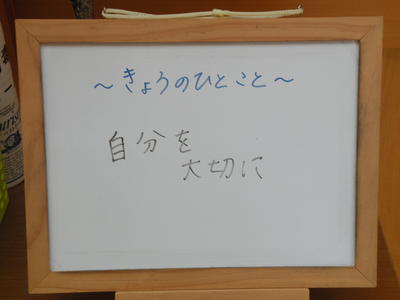 ～きょうのひとこと～
自分を
大切に